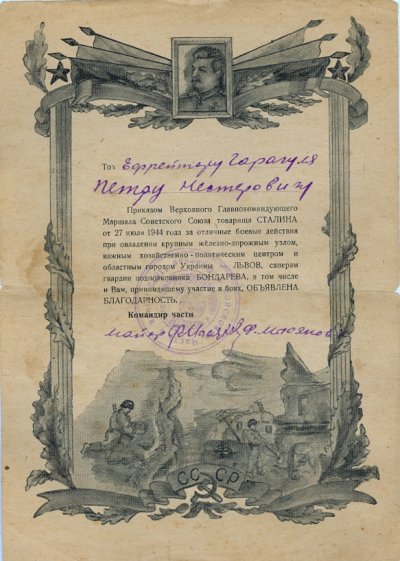 Тов. Ефрейтору Гарагуля
Петру Нестеровичу
Приказом Верховного Главнокомандующего
Маршала Советского Союза товарища СТАЛИНА
от 27 июля 1944 года за отличные боевые действия
при овладении крупным железно-дорожным узлом,
важным хозяйственно-политическим центром и
областным городом Украины ЛЬВОВ, саперам
гвардии подполковника БОНДАРЕВА, в том числе
и Вам, принимавшему участие в боях, ОБЪЯВЛЕНА
БЛАГОДАРНОСТЬ.
Командир части
майор
СССР